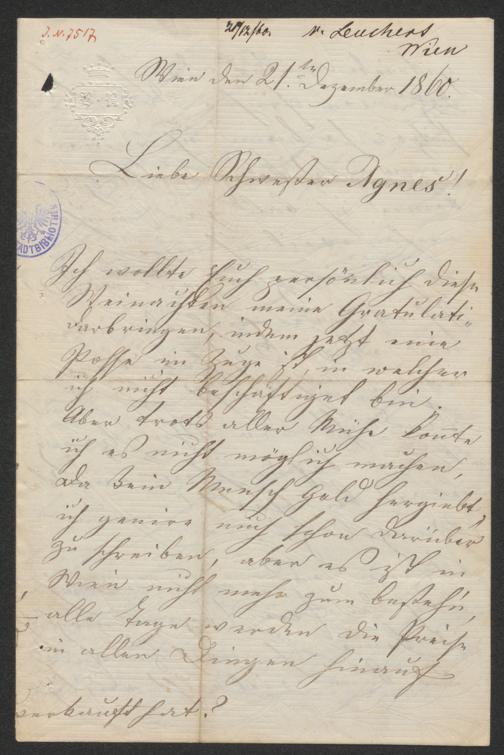 J.N. 7517
21/12/60. v. Leuchert
Wien
Wien den 21.ten Dezember 1860.
Liebe Schwester Agnes!
STADTBIBLIOTHEK
Ich wollte Euch persönlich diese
Weinachten meine Gratulati-
darbringen, indem jetzt eine
Posse im Zuge ist, in welcher
ich nicht beschäftiget bin.
Aber trotz aller Mühe konnte
ich es nicht möglich machen,
da kein Mensch Geld hergiebt,
ich genire mich schon darüber
zu schreiben, aber es ist in
Wien nicht mehr zum bestehn,
alle Tage werden die Preise
in allen Dingen hinauf
verkauft hat?